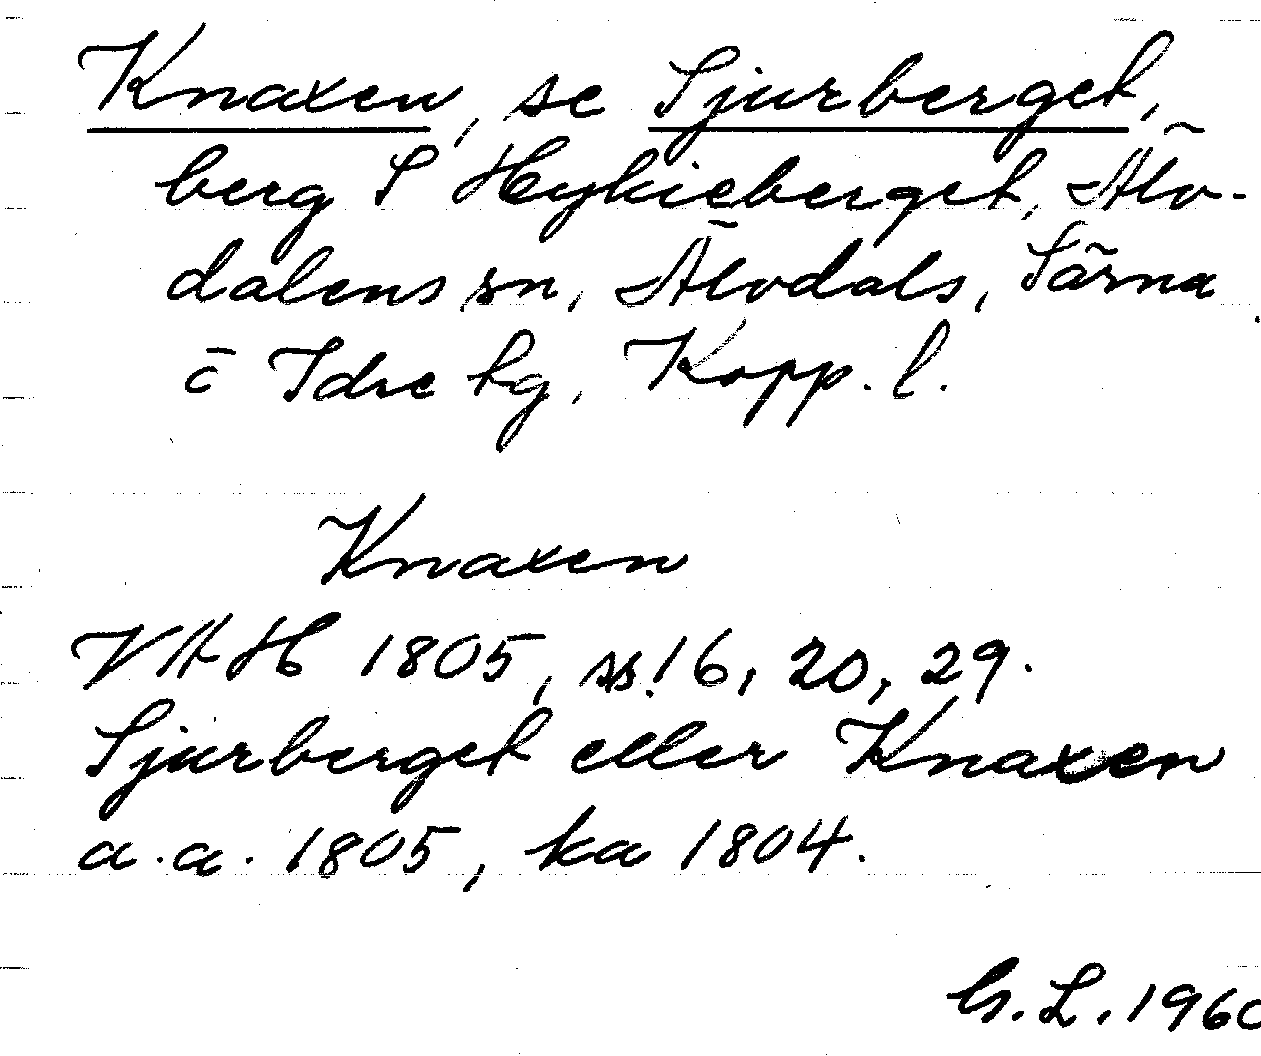 Knaxen, se Sjurberget,
berg S Hykieberget, Älv-
dalens sn, Älvdals, Särna
o Idre tg, Kopp. l.
Knaxen
VAH 1805, ss. 16, 20, 29.
Sjurberget eller Knaxen
a. a. 1805, ka 1804.
G. L. 1960